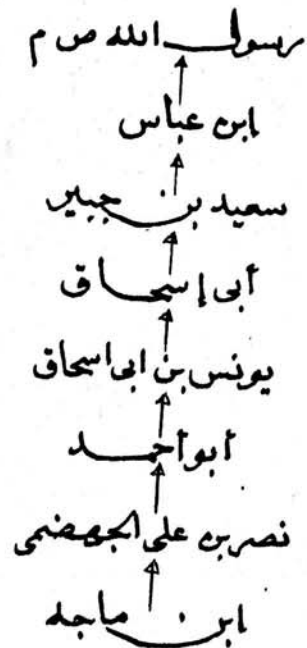 رسول الله ص م
ابن عباس
سعيد بن جبير
أبى إسحاق
يونس بن ابى اسحاق
أبو أحمد
نصر بن على الجهضمى
ابن ماجه